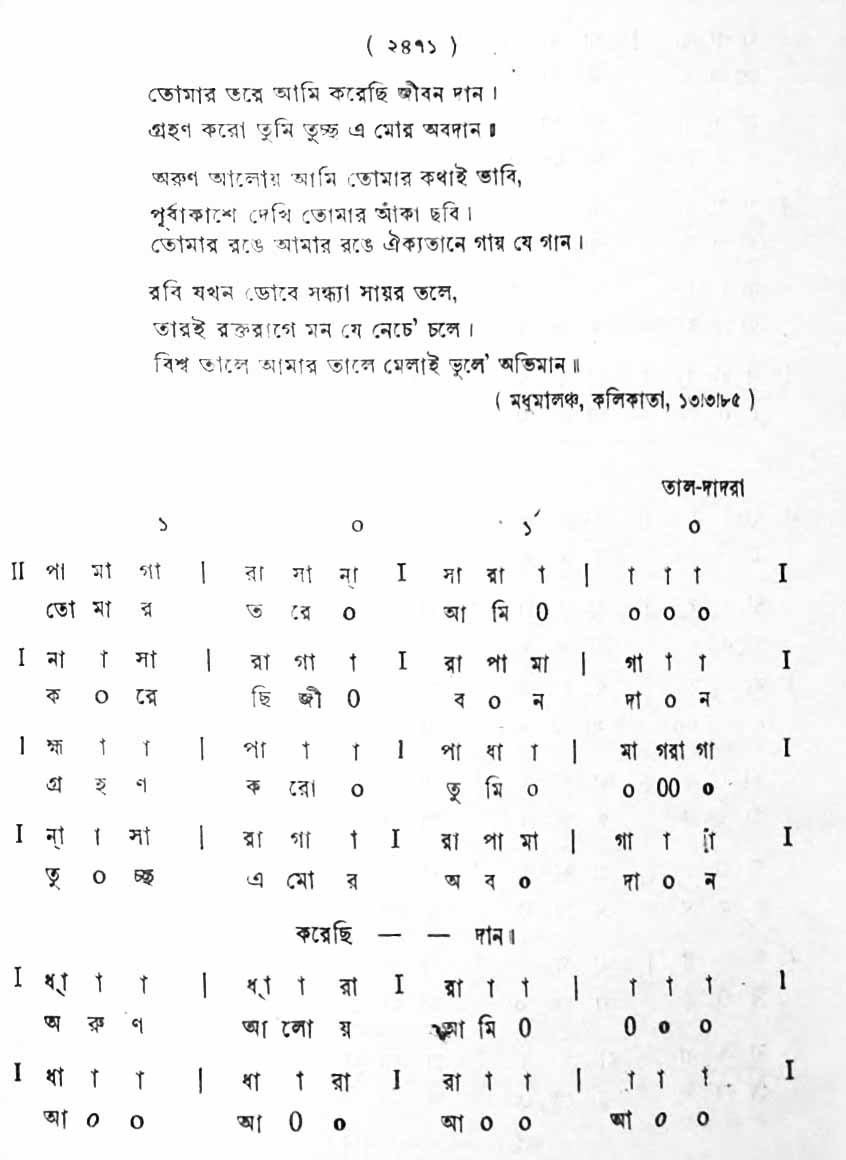 ( ২৪৭১ )
তোমার তরে আমি করেছি জীবন দান ।
গ্রহণ করো তুমি তুচ্ছ এ মোর অবদান ॥
অরুণ আলোয় আমি তোমার কথাই ভাবি,
পূর্বাকাশে দেখি তোমার আঁকা ছবি ।
তোমার রঙে আমার রঙে ঐক্যতানে গায় যে গান ।
রবি যখন ডোবে সন্ধ্যা সায়র তলে,
তারই রক্তরাগে মন যে নেচে’ চলে ।
বিশ্ব তালে আমার তালে মেলাই ভুলে’ অভিমান ॥
( মধুমালঞ্চ, কলিকাতা, ১৩।৩।৮৫ )
তাল-দাদরা
১ ০ ১´ ০
II পা মা গা | রা সা ন্া I সা রা া | া া া I
তো মা র ত রে ০ আ মি 0 ০ ০ ০
I না া সা | রা গা া I রা পা মা | গা া া I
ক ০ রে ছি জী 0 ব ০ ন দা ০ ন
I হ্মা া া | পা া া I পা ধা া | মা গরা গা I
গ্র হ ণ ক রো ০ তু মি ০ ০ 00 ০
I ন্া া সা | রা গা া I রা পা মা | গা া া I
তু ০ চ্ছ এ মো র অ ব ০ দা ০ ন
করেছি — — দান॥
I ধ্া া া | ধ্া া রা I রা া া | া া া I
অ রু ণ আ লো য় আ মি 0 0 ০ ০
I ধা া া | ধা া রা I রা া া | া া া I
আ ০ ০ আ 0 ০ আ ০ ০ আ ০ ০